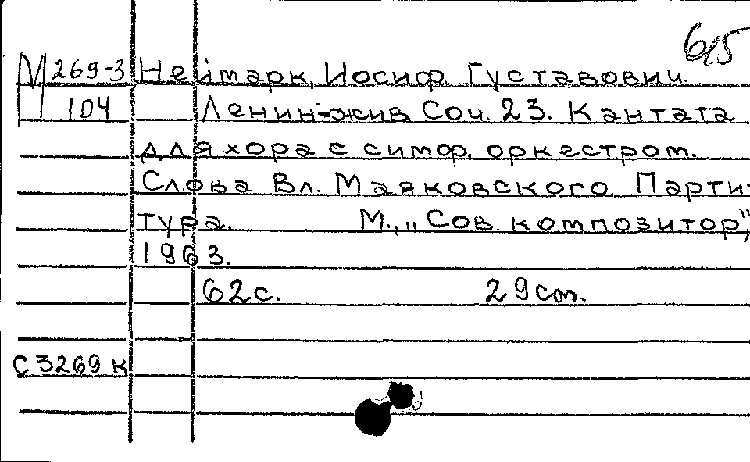 6,5
М 269-3 Неймарк, Иосиф Густавович.
104 Ленин-жив. Соч. 23. Кантата
для хора с симф. оркестром.
Слова Вл. Маяковского. Парти-
тура. М., „Сов. композитор",
1963.
62 с. 29 см.
С 3269 к